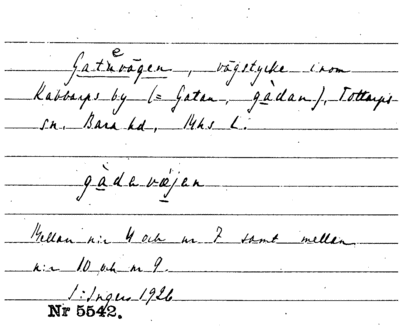 Gatevägen, vägstycke inom
Kabbarps by (= Gatan, gàdan), Tottarps
sn, Bara hd, Mhs L.
gàdavæjen
Mellan n:r 4 och nr 7 samt mellan
n:r 10 och nr 9.
S. Ingers 1926
Nr 5542.